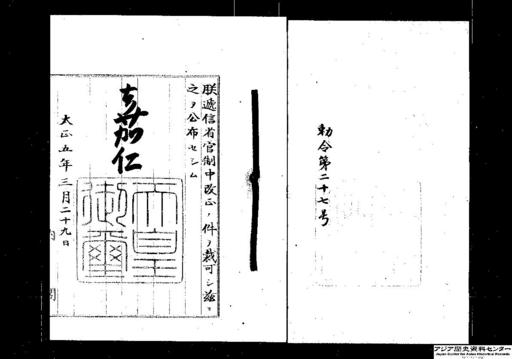 勅令第二十七号
朕逓信省官制中改正ノ件ヲ裁可シ茲ニ
之ヲ公布セシム
嘉仁
天皇御璽
大正五年三月二十九日
アジア歴史資料センター
Japan Center for Asian Historical Records